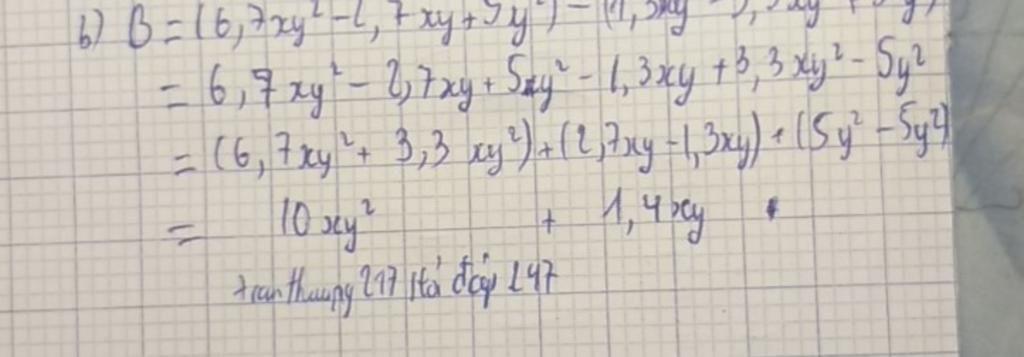 b) B = (6,7xy² - 2,7xy + 5y²) - (1,3xy - 3,3xy² + 5y²)
= 6,7xy² - 2,7xy + 5y² - 1,3xy + 3,3xy² - 5y²
= (6,7xy² + 3,3 xy²) + (2,7xy - 1,3xy) + (5y² - 5y²)
= 10xy² + 1,4xy
tranthuong 217 Hỏi đáp 247